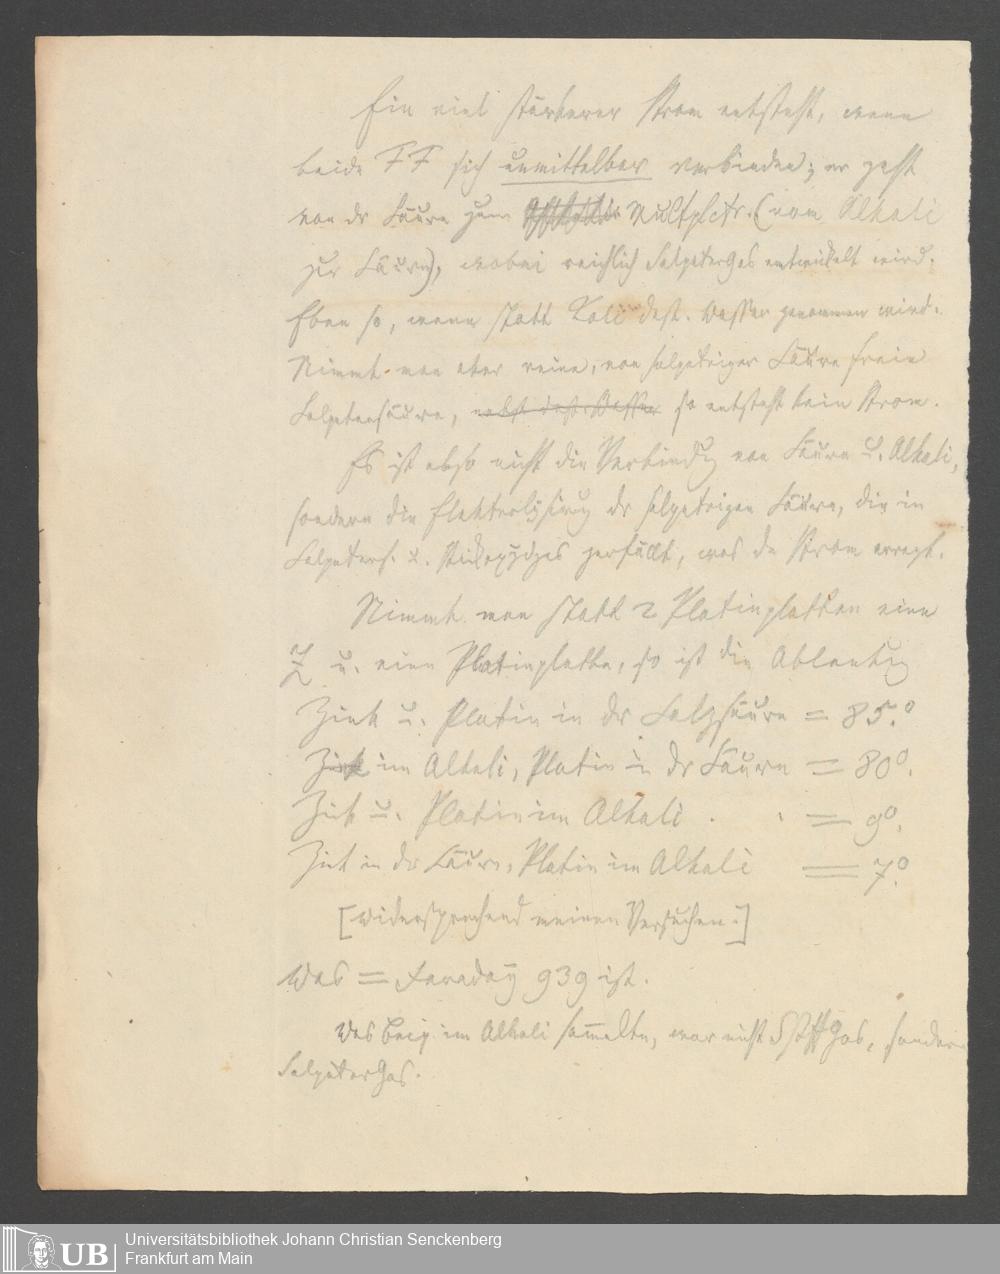 Ein viel stärkerer Strom entsteht, wenn
beide FF sich unmittelbar verbinden; er geht
von dr Säure zum Multplctr. (vom Alkali
zur Säure), wobei reichlich SalpeterGas entwickelt wird.
Eben so, wenn statt Kali dest. Wasser genommen wird.
Nimmt man aber reine, von salpetriger Säure freie
Salpetersäure, nebst dest. Wasser so entsteht kein Strom.
Es ist also nicht die Verbindg von Säure u. Alkali,
sondern die Elektrolysirug dr salpetrigen Säure, die in
Salpeters. u. Stickoxydgas zerfällt, was de Strom erregt.
Nimmt man statt 2 Platinplatten eine
Z u. eine Platinplatte, so ist die Ablenkug
Zink u. Platin in dr Salzsäure = 85.°
Zink im Alkali, Platin in dr Säure = 80°.
Zink u. Platin im Alkali . . = 9°.
Zink in dr Säure, Platin im Alkali = 7.°
[Widersprechend meinen Versuchen.]
Was = Faraday 939 ist.
Was Beq. im Alkali sammelte, war nicht SstffGas, sondern
SalpeterGas.
Universitätsbibliothek Johann Christian Senckenberg
Frankfurt am Main
UB